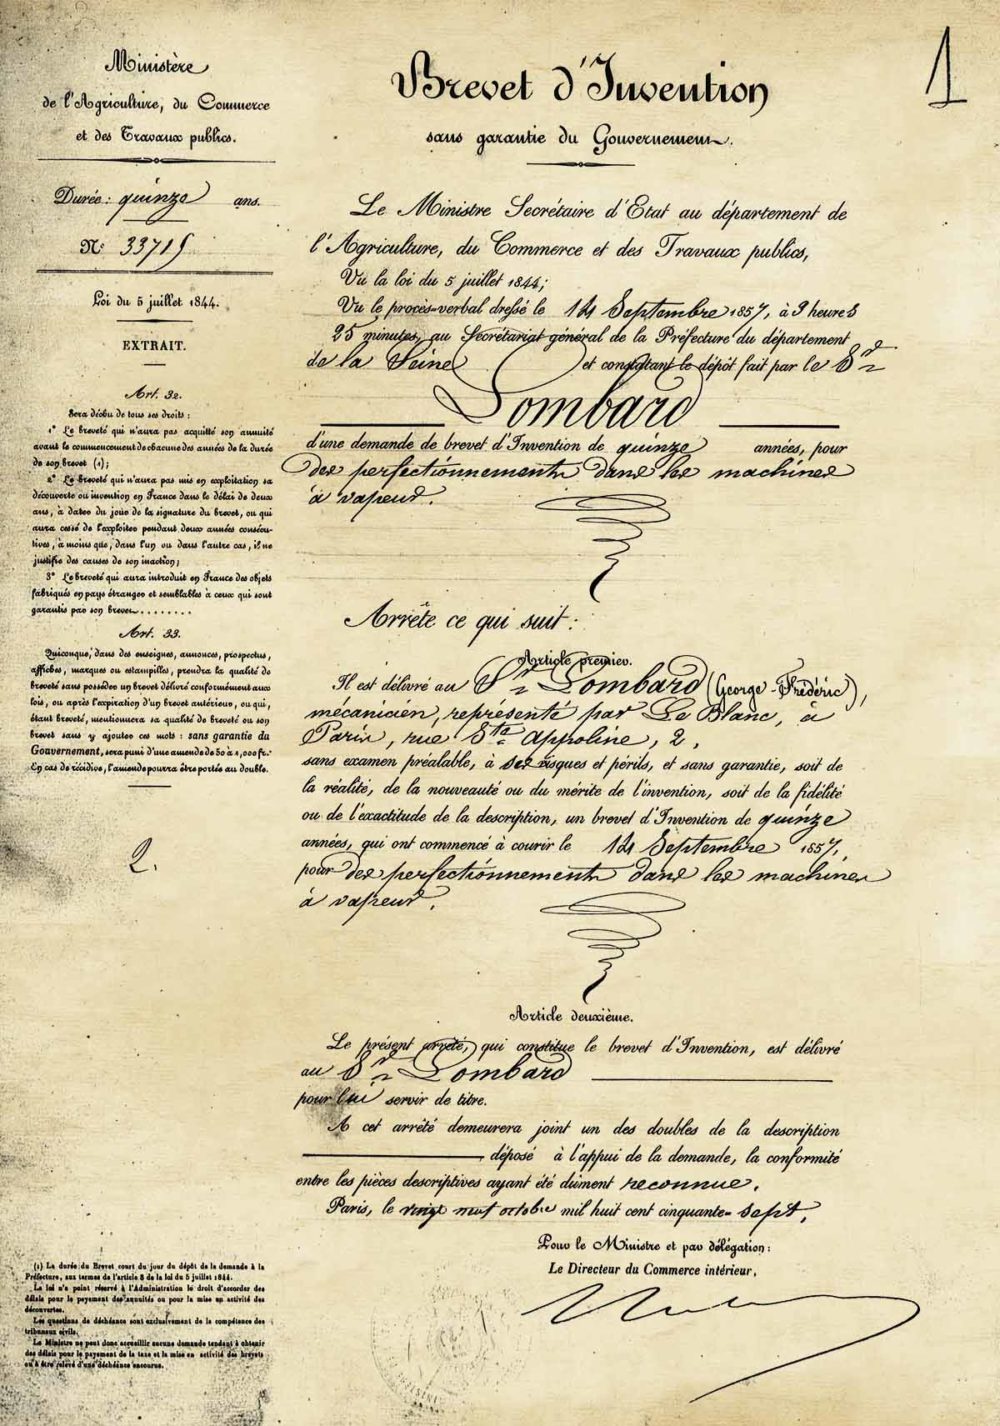 Ministère
de l'Agriculture, du Commerce
et des Travaux publics.
Durée: quinze ans.
N: 33715
Loi du 5 juillet 1844.
EXTRAIT.
Art. 32.
Sera déchu de tous ses droits :
1° Le breveté qui n'aura pas acquitté son annuité
avant le commencement de chacune des années de la durée
de son brevet (1);
2° Le breveté qui n'aura pas mis en exploitation sa
découverte ou invention en France dans le délai de deux
ans, à dater du jour de la signature du brevet, ou qui
aura cessé de l'exploiter pendant deux années consécu-
tives, à moins que, dans l'un ou dans l'autre cas, il ne
justifie des causes de son inaction;
3° Le breveté qui aura introduit en France des objets
fabriqués en pays étranger et semblables à ceux qui sont
garantis par son brevet........
Art. 33.
Quiconque, dans des enseignes, annonces, prospectus,
affiches, marques ou estampilles, prendra la qualité de
breveté sans posséder un brevet délivré conformément aux
lois, ou après l'expiration d'un brevet antérieur, ou qui,
étant breveté, mentionnera sa qualité de breveté ou son
brevet sans y ajouter ces mots : sans garantie du
Gouvernement, sera puni d'une amende de 50 à 1,000 fr.
En cas de récidive, l'amende pourra être portée au double.
2.
(1) La durée du Brevet court du jour du dépôt de la demande à la
Préfecture, aux termes de l'article 8 de la loi du 5 juillet 1844.
La loi n'a point réservé à l'Administration le droit d'accorder des
délais pour le payement des annuités ou pour la mise en activité des
découvertes.
Les questions de déchéance sont exclusivement de la compétence des
tribunaux civils.
Le Ministre ne peut donc accueillir aucune demande tendant à obtenir
des délais pour le payement de la taxe et la mise en activité des brevets
ou à être relevé d'une déchéance encourue.
1
Brevet d'Invention
sans garantie du Gouvernement.
Le Ministre Secrétaire d'Etat au département de
l'Agriculture, du Commerce et des Travaux publics,
Vu la loi du 5 juillet 1844;
Vu le procès-verbal dressé le 14 Septembre 1857, à 3 heures
25 minutes, au Secrétariat général de la Préfecture du département
de la Seine et constatant le dépôt fait par le Sr
Lombard
d'une demande de brevet d'Invention de quinze années, pour
des perfectionnements dans les machines
à vapeur.
Arrête ce qui suit :
Article premier.
Il est délivré au Sr Lombard (George-Frédéric),
mécanicien, représenté par Le Blanc, à
Paris, rue Ste Appoline, 2,
sans examen préalable, à ses risques et périls, et sans garantie, soit de
la réalité, de la nouveauté ou du mérite de l'invention, soit de la fidélité
ou de l'exactitude de la description, un brevet d'Invention de quinze
années, qui ont commencé à courir le 14 Septembre 1857,
pour des perfectionnements dans les machines
à vapeur.
Article deuxième.
Le présent arrêté, qui constitue le brevet d'Invention, est délivré
au Sr Lombard
pour lui servir de titre.
A cet arrêté demeurera joint un des doubles de la description
déposé à l'appui de la demande, la conformité
entre les pièces descriptives ayant été dûment reconnue.
Paris, le vingt neuf octobre mil huit cent cinquante-sept.
Pour le Ministre et par délégation :
Le Directeur du Commerce intérieur,